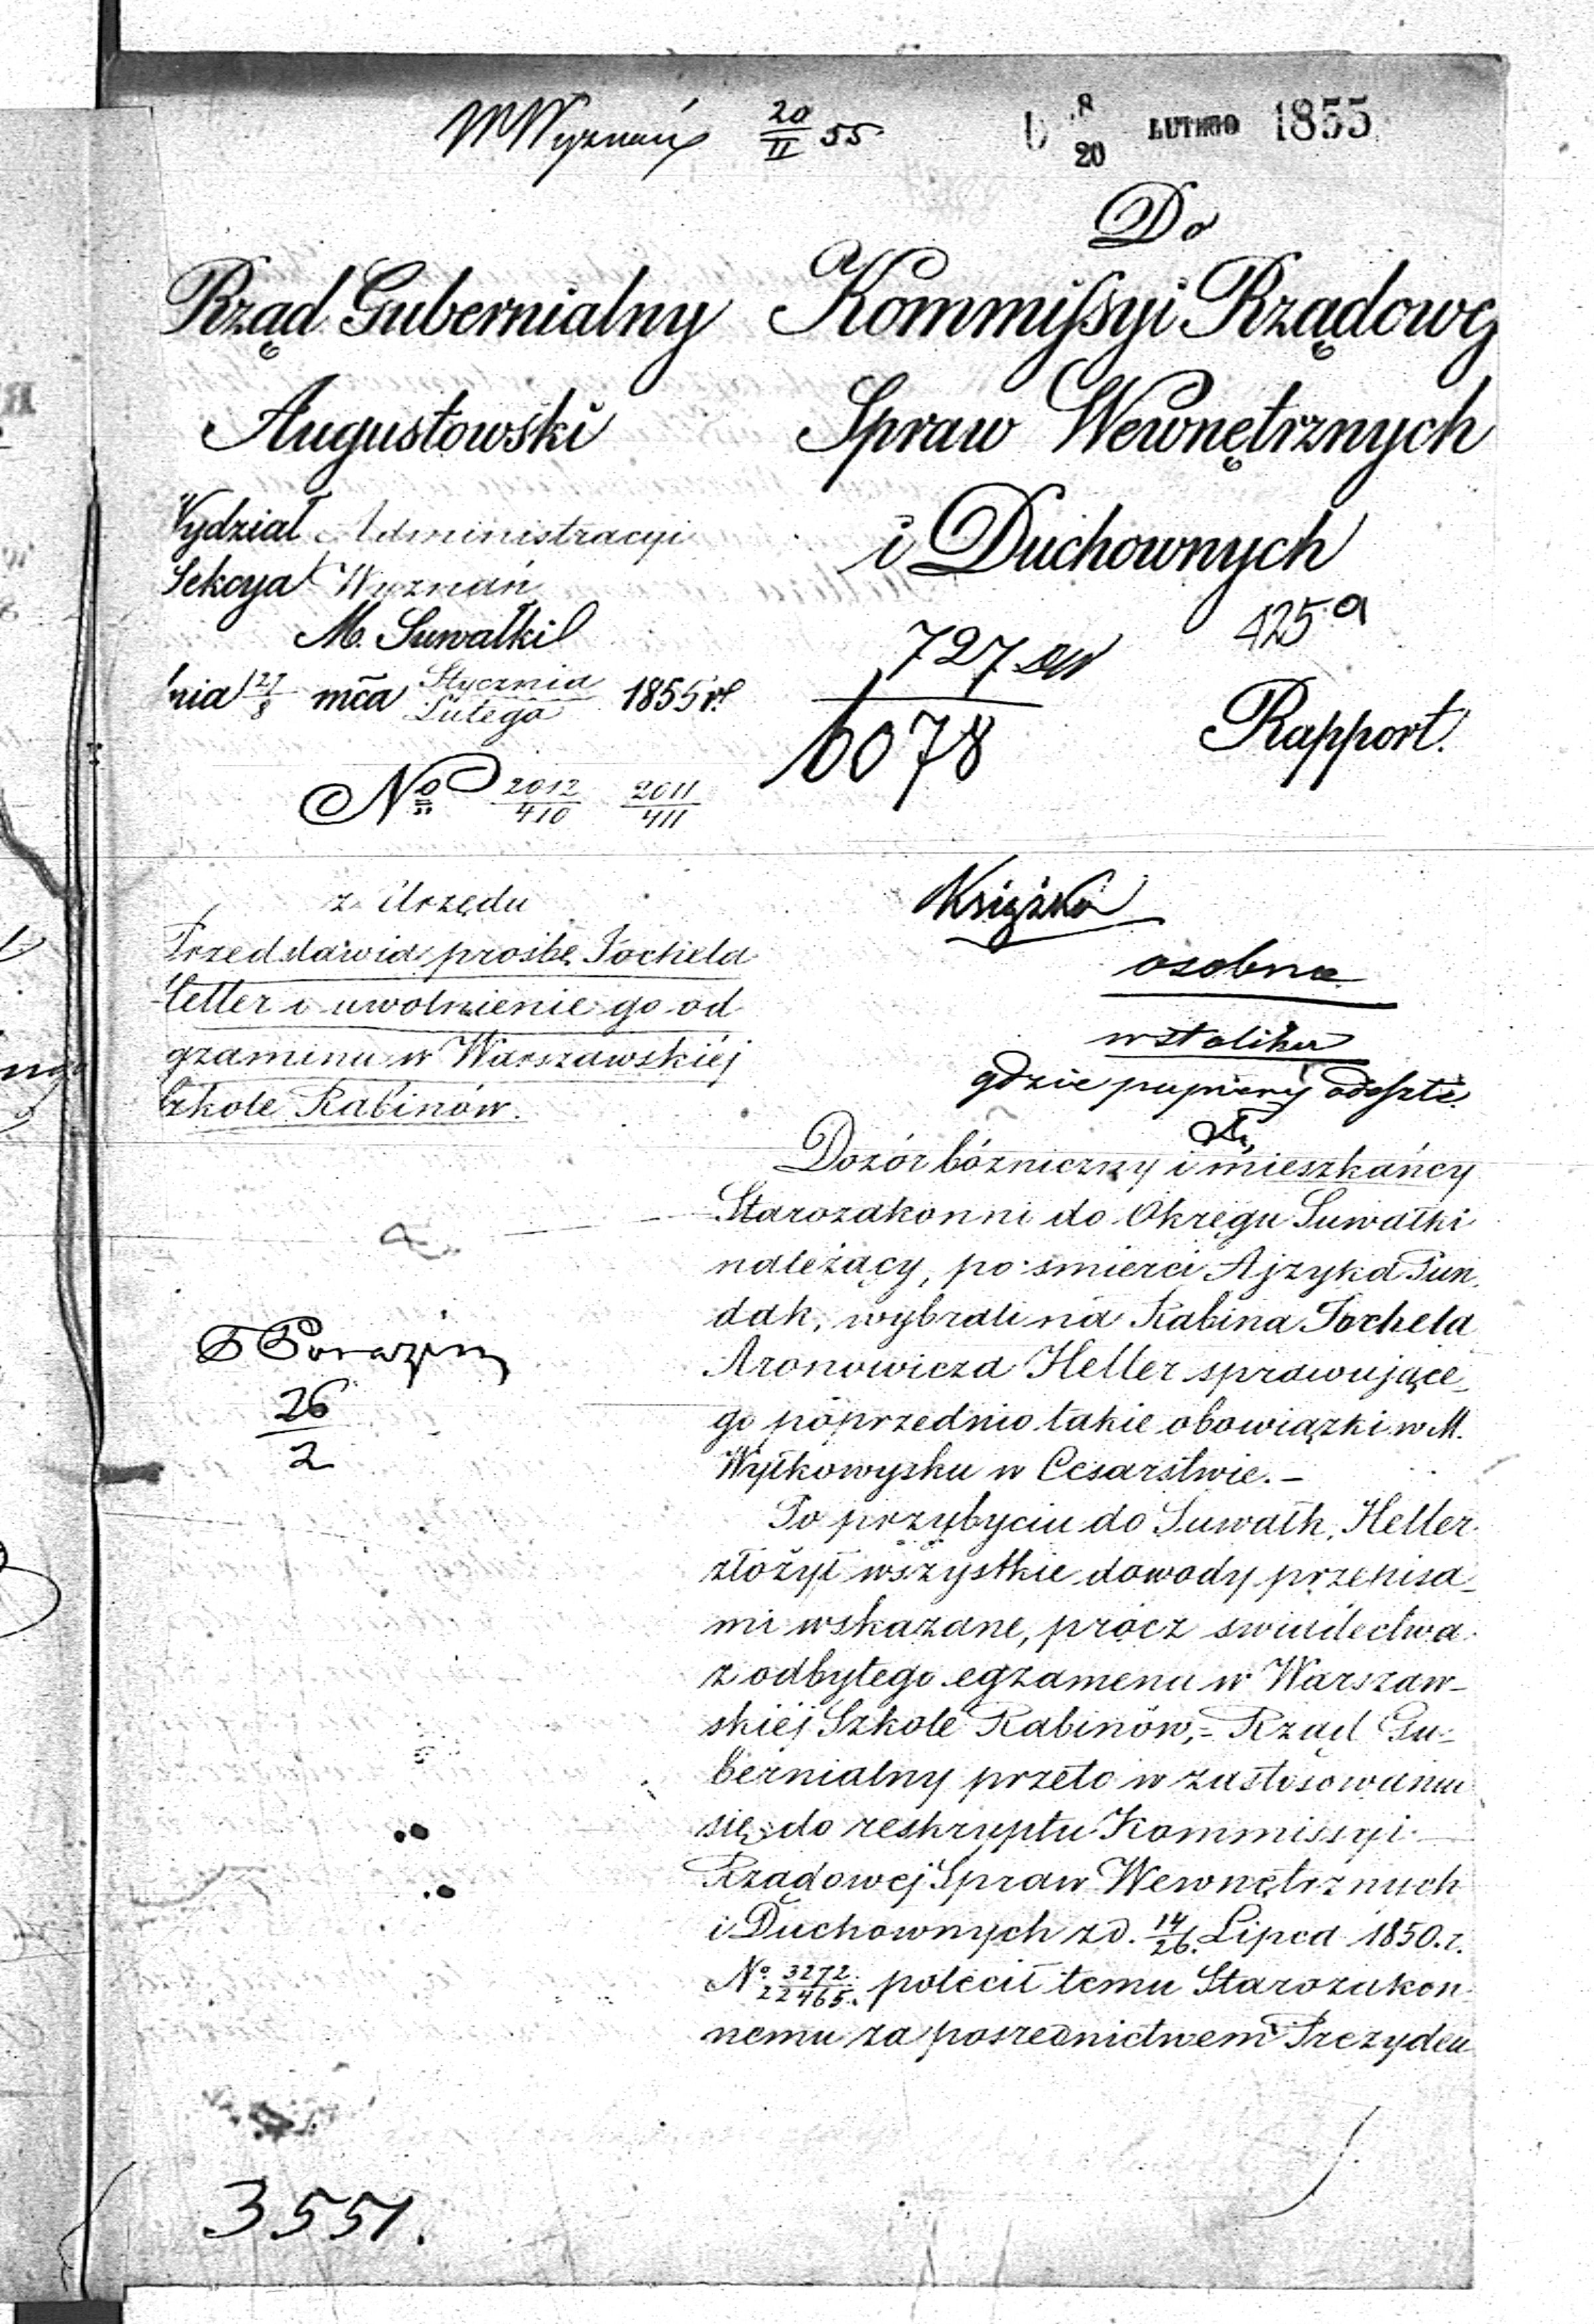 WWyznań 20/II 55
8/20 LUTEGO 1855
Do
Rząd Gubernialny
Augustowski
Kommissyi Rządowej
Spraw Wewnętrznych
i Duchownych
Wydział Administracyi
Sekcya Wyznań
M. Suwałki
nia 27/8 mca Stycznia/Lutego 1855 r.
No 2012/410 2011/411
425a
727
6078
Rapport.
z Urzędu
Przedstawia prośbę Jochela
Heller o uwolnienie go od
gzaminu w Warszawskiéj
Szkole Rabinów.
Książka
osobna
w stoliku
gdzie papiery odeszłe.
Dozór bóżniczny i mieszkańcy
Starozakonni do Okręgu Suwałki
należący, po śmierci Ajzyka Pun
dak, wybrali na Rabina Jochela
Aronowicza Heller sprawujące_
go poprzednio takie obowiązki w M.
Wyłkowysku w Cesarstwie.–
Po przybyciu do Suwałk, Heller
złożył wszystkie dowody przepisa_
mi wskazane, prócz swiadectwa
z odbytego egzamenu w Warszaw–
skiéj Szkole Rabinów,= Rząd Gu=
bernialny przeto w zastosowaniu
się do reskryptu Kommissyi
Rządowej Spraw Wewnętrznych
i Duchownych z d. 14/26. Lipca 1850.r.
No. 3272/22465. polecił temu Starozakon
nemu za posrednictwem Prezyden
26/2
3551.